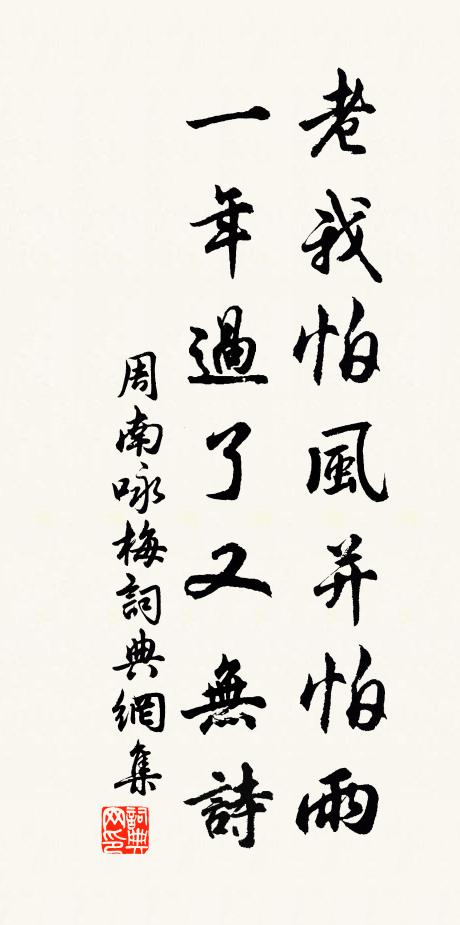 老我怕風并怕雨
一年過了又無詩
周南咏梅詞典網集
詞典网印